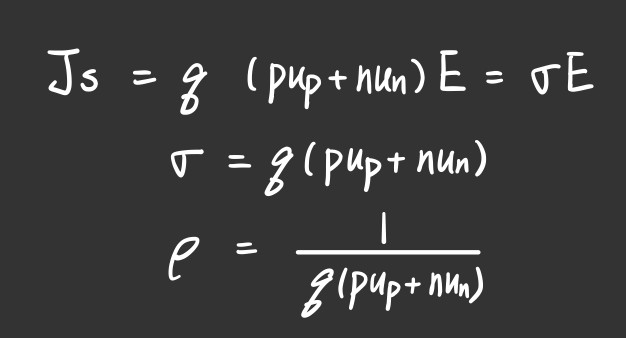 Js = q (pup + nun) E = σE
σ = q(pup + nun)
ρ = 1 / q(pup + nun)